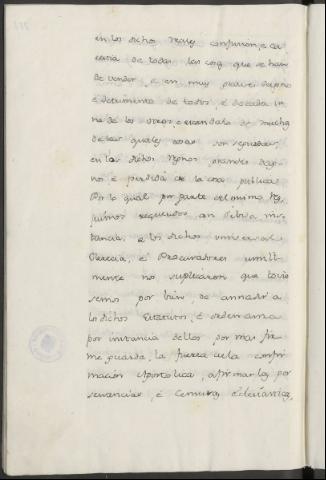 en los dichos Reales confusion, e ca
restia de todas las cosas que se han
de vender, e en muy grave dapno
e detrimento de todos, e de cada u
no de los otros e escandalo de muchos
de las quales cosas son seguidas,
en los dichos Regnos, grandes dap
nos, é perdida de la cosa publica
Por lo qual por parte del mismo Rey
fuimos requeridos, con debida ins
tancia. e los dichos universal
Clerecía, é Procuradores umill
mente nos suplicaron que tovie
semos por bien, de annadir a
los dichos Estatutos, é ordenanza
por instancia dellos, por mas fir
me guarda, la fuerza de la confir
mación Apostolica, afirmarlos por
sentencias, é Censuras Eclesiasticas,